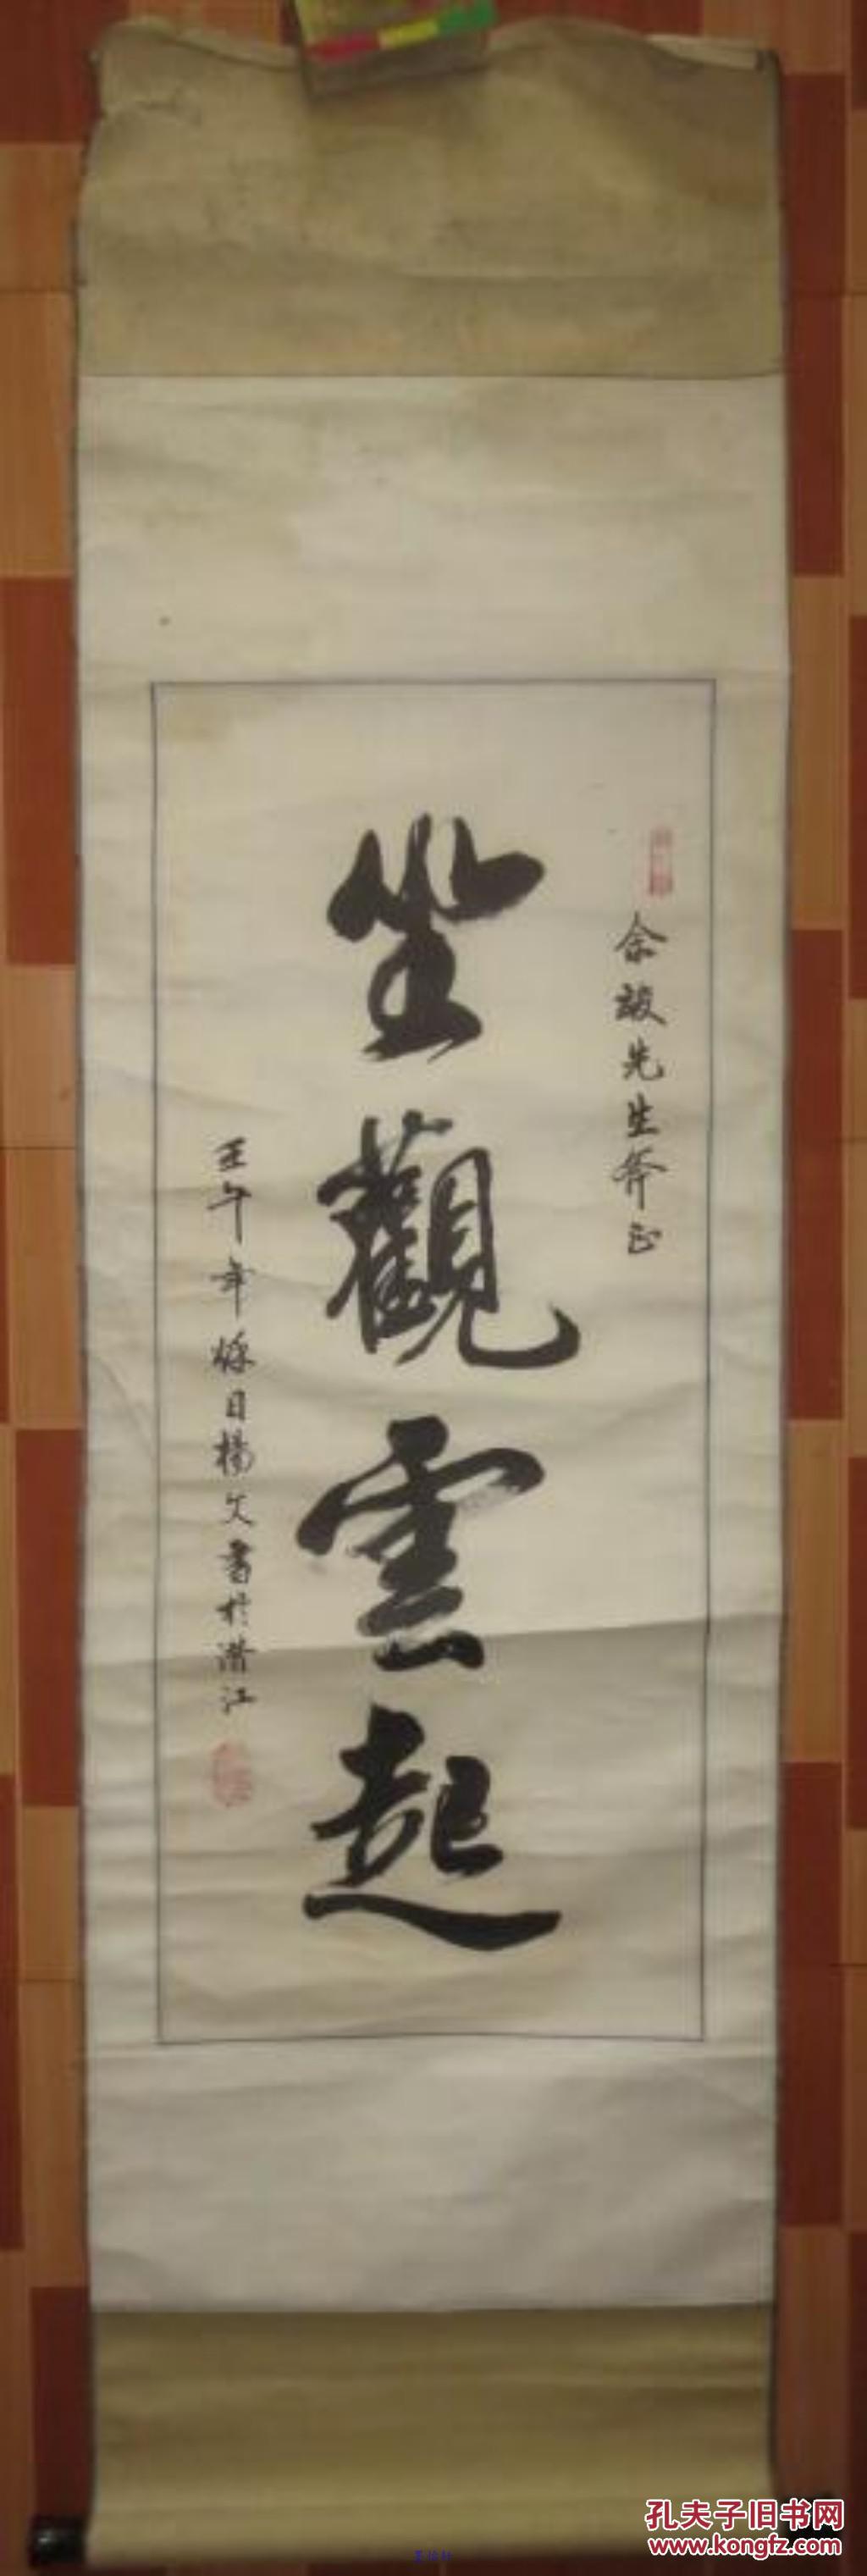 余毅先生斧正
坐觀雲起
壬午年秌日楊文書於潜江
孔夫子旧书网
www.kongfz.com